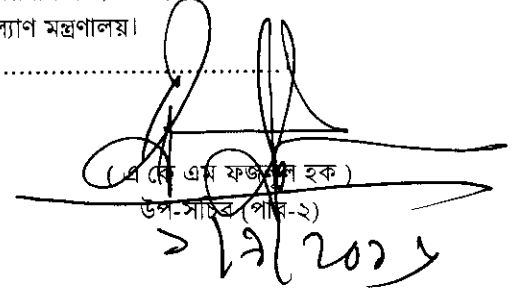 ল্যাণ মন্ত্রণালয়।
( এ কে এম ফজলুল হক )
উপ-সচিব (পার-২)